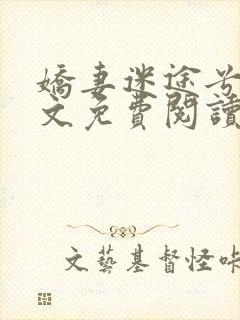 嬌妻迷途兮
文免費閱讀
文藝基督怪咔